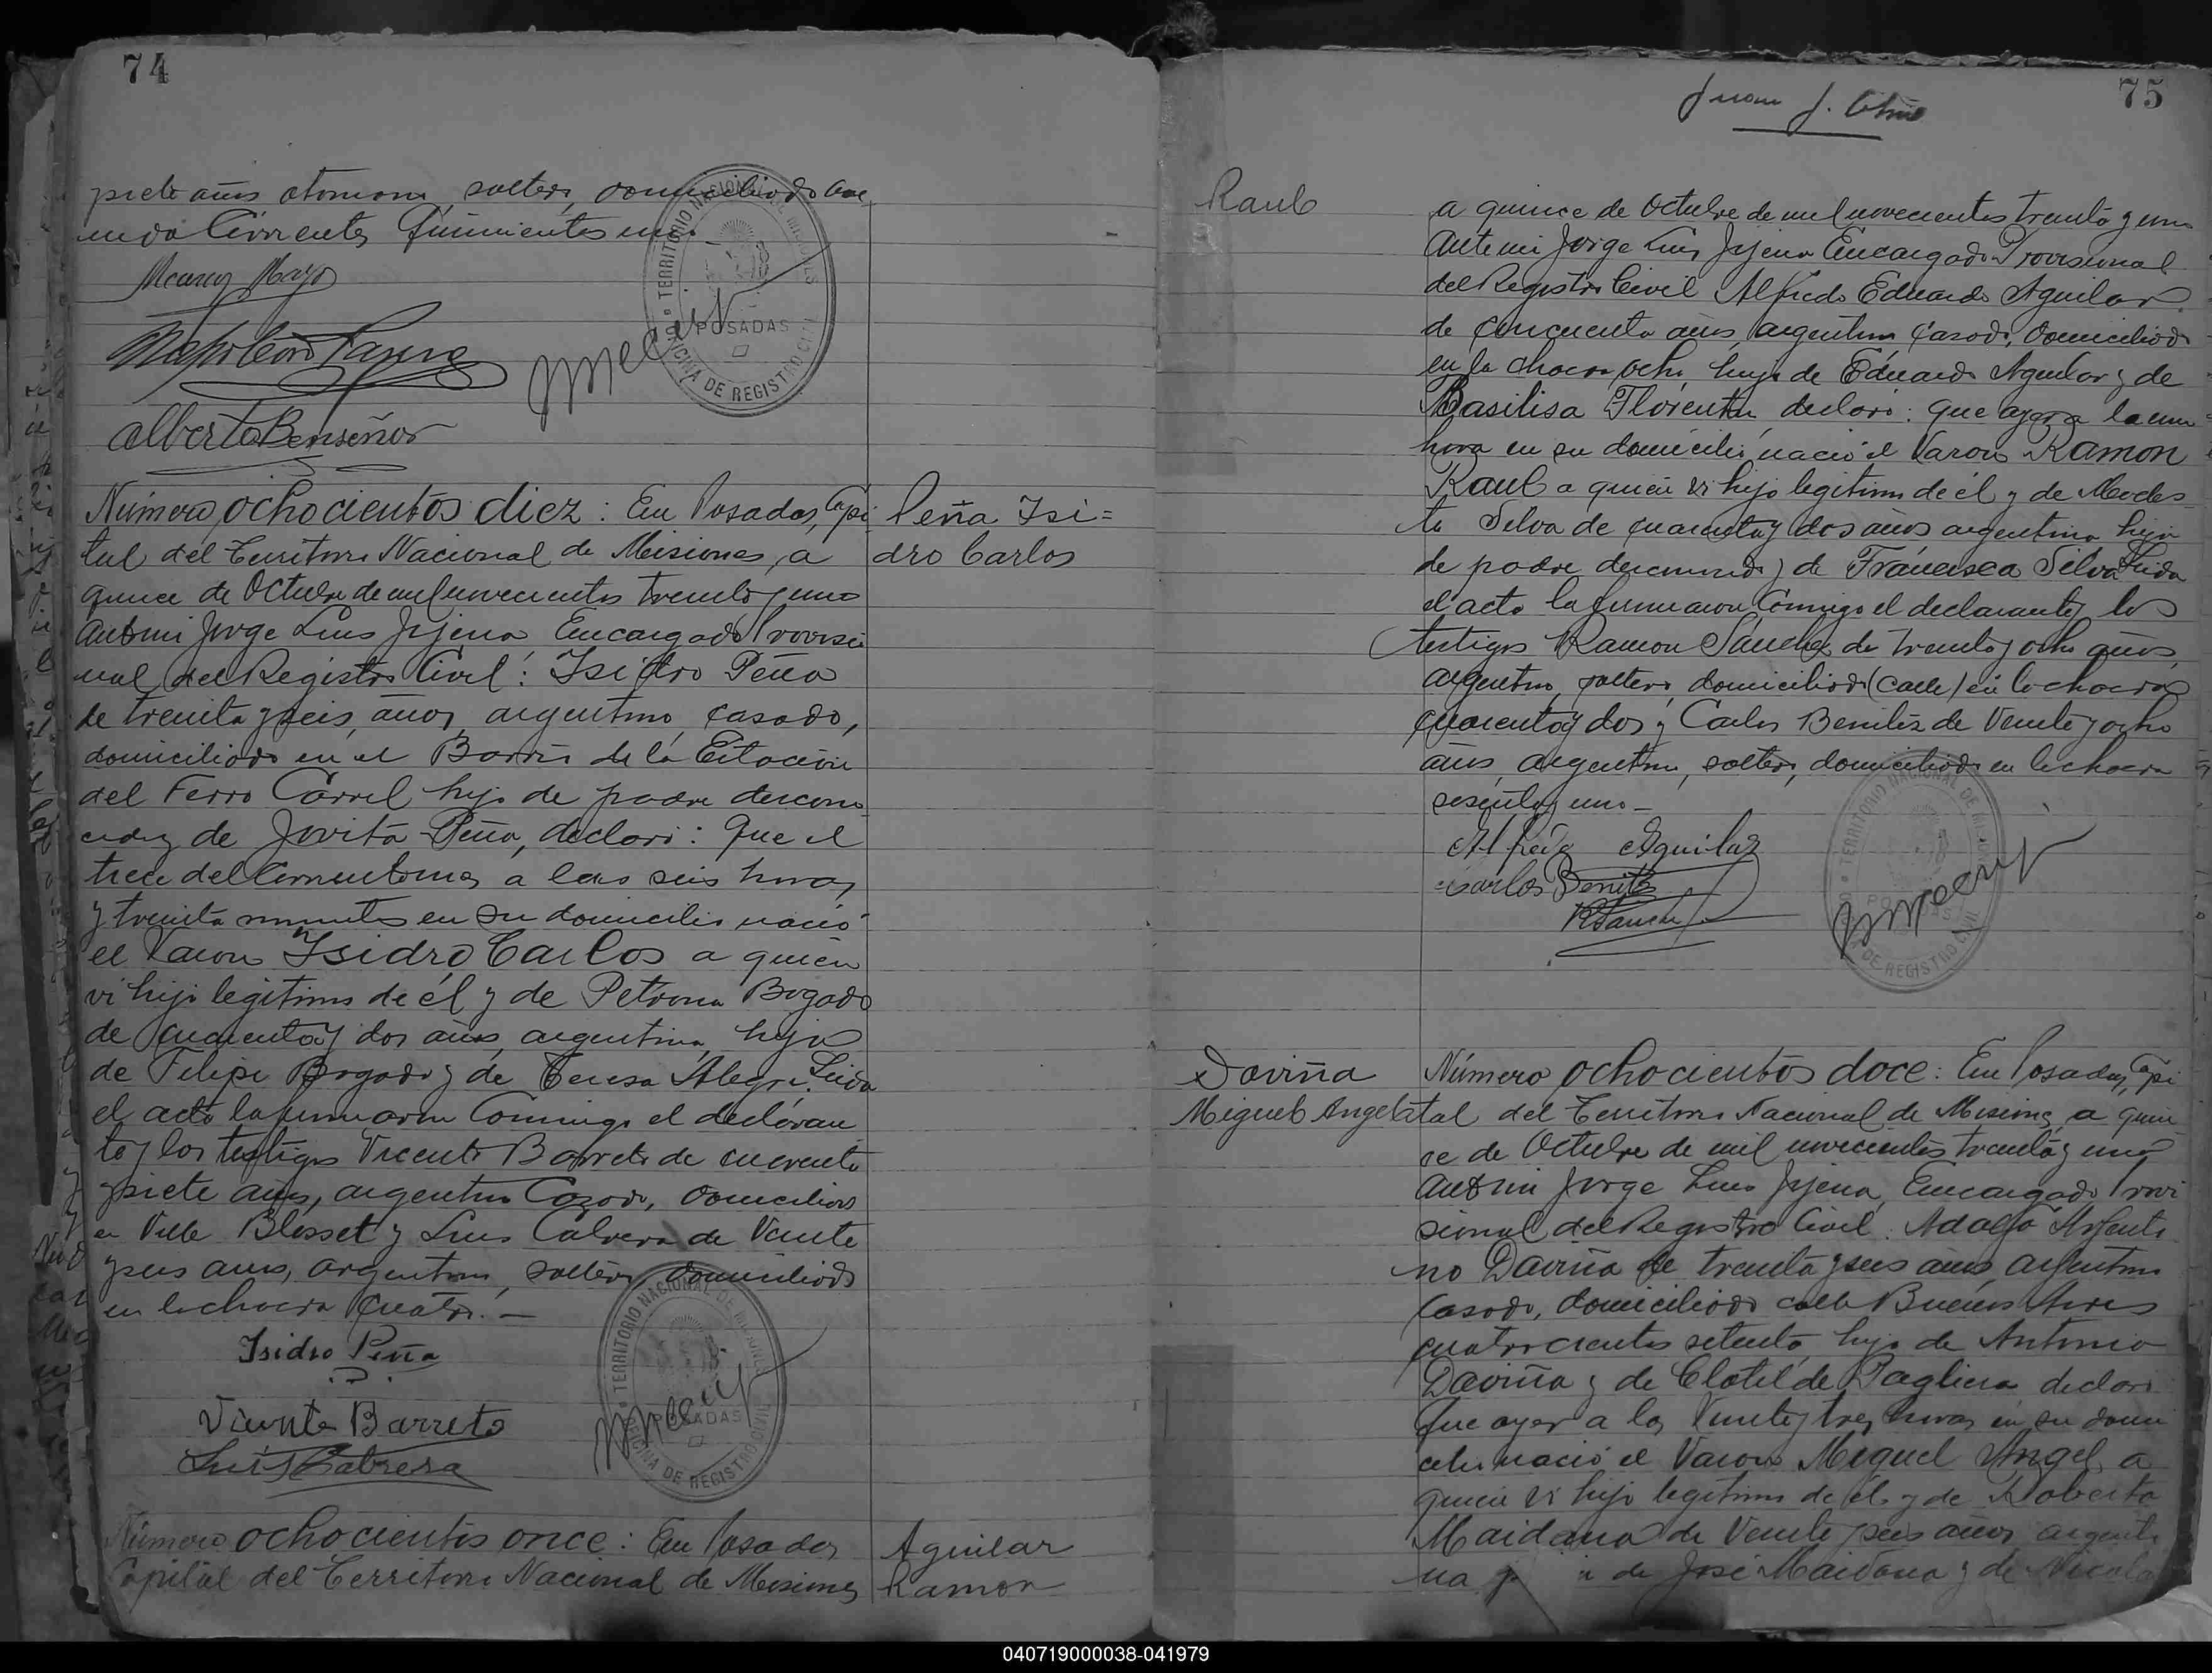 74
siete años otomano, soltero, domiciliado Ave
nida Corrientes quinientos uno.
Marcos Mayo
Alberto Benseñor
TERRITORIO NACIONAL DE MISIONES
POSADAS
OFICINA DE REGISTRO CIVIL
Número ochocientos diez: En Posadas, Capi
tal del Territorio Nacional de Misiones, a
quince de Octubre de mil novecientos treinta y uno
Ante mi Jorge Luis Jijena Encargado Proviso
nal del Registro Civil: Isidro Peña
de treinta y seis, años, argentino, casado,
domiciliado en el Barrio de la Estación
del Ferro Carril hijo de padre descono
cido y de Jovita Peña, declaró: Que el
trece del corriente mes a las seis horas
y treinta minutos en su domicilio nació
el Varon Isidro Carlos a quien
vi hijo legitimo de él y de Petrona Bogado
de cuarenta y dos años argentina, hija
de Filipe Bogado y de Teresa Alegre. Leida
el acta la firmaron Conmigo el declaran
te y los testigos Vicente Barreto de cuarenta
y siete años, argentino Casado, domiciliado
en Villa Blosset y Luis Cabrera de Veinte
y seis años, argentino, soltero, domiciliado
en la chacra cuatro.—
Isidro Peña
Vicente Barreto
Luis Cabrera
TERRITORIO NACIONAL DE MISIONES
POSADAS
OFICINA DE REGISTRO CIVIL
Peña Isi=
dro Carlos
Número ochocientos once: En Posadas
Capital del Territorio Nacional de Misiones
Aguilar
Ramon
75
Juan J.
Raul
a quince de Octubre de mil novecientos treinta y uno
Ante mi Jorge Luis Jijena Encargado Provisional
del Registro Civil Alfredo Eduardo Aguilar
de cincuenta años argentino casado, domiciliado
en la chacra ocho, hijo de Eduardo Aguilar y de
Basilisa Florentin, declaró: Que ayer a la una
hora en su domicilio, nació el Varon Ramon
Raul a quien vi hijo legitimo de él y de Modes
ta Silva de cuarenta y dos años argentina hija
de padre desconocido y de Francisca Silva Leida
el acta la firmaron Conmigo el declarante y los
testigos Ramon Sanchez de treinta y ocho años,
argentino, soltero, domiciliado (calle) en la chacra
cuarenta y dos y Carlos Benitez de Veinte y ocho
años, argentino, soltero, domiciliado en la chacra
sesenta y uno—
Alfredo Aguilar
Carlos Benitez
RSanchez
TERRITORIO NACIONAL DE MISIONES
POSADAS
DE REGISTRO CIVIL
Daviña
Miguel Angel
Número ochocientos doce: En Posadas, Capi
tal del Territorio Nacional de Misiones, a quin
ce de Octubre de mil novecientos treinta y uno
Ante mi Jorge Luis Jijena, Encargado Provi
sional del Registro Civil: Adolfo Argenti
no Daviña de treinta y seis años, argentino
Casado, domiciliado calle Buenos Aires
cuatrocientos setenta, hijo de Antonio
Daviña y de Clotilde Pagliera declaró
Que ayer a las Veinte y tres horas en su domi
cilio nació el Varon Miguel Angel, a
quien vi hijo legitimo de él y de Roberta
Maidana de Veinte y seis años, argenti
na de José Maidana y de
040719000038-041979